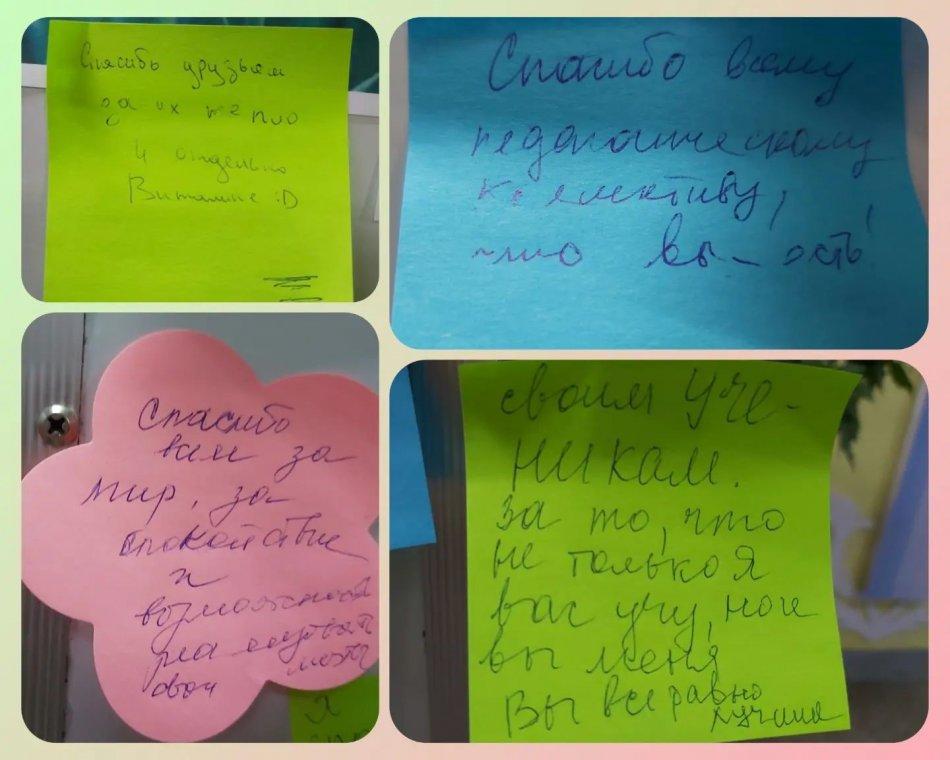 Спасибо друзьям
за их тепло
и отдельно
Виталине :D
Спасибо всему
педагогическому
коллективу,
что вы – есть!
Спасибо
вам за
мир, за
спокойствие
и
возможность
реализовать
свои мечты
Я
своим уче-
никам.
За то, что
не только я
вас учу, но и
вы меня
Вы все равно
лучшие